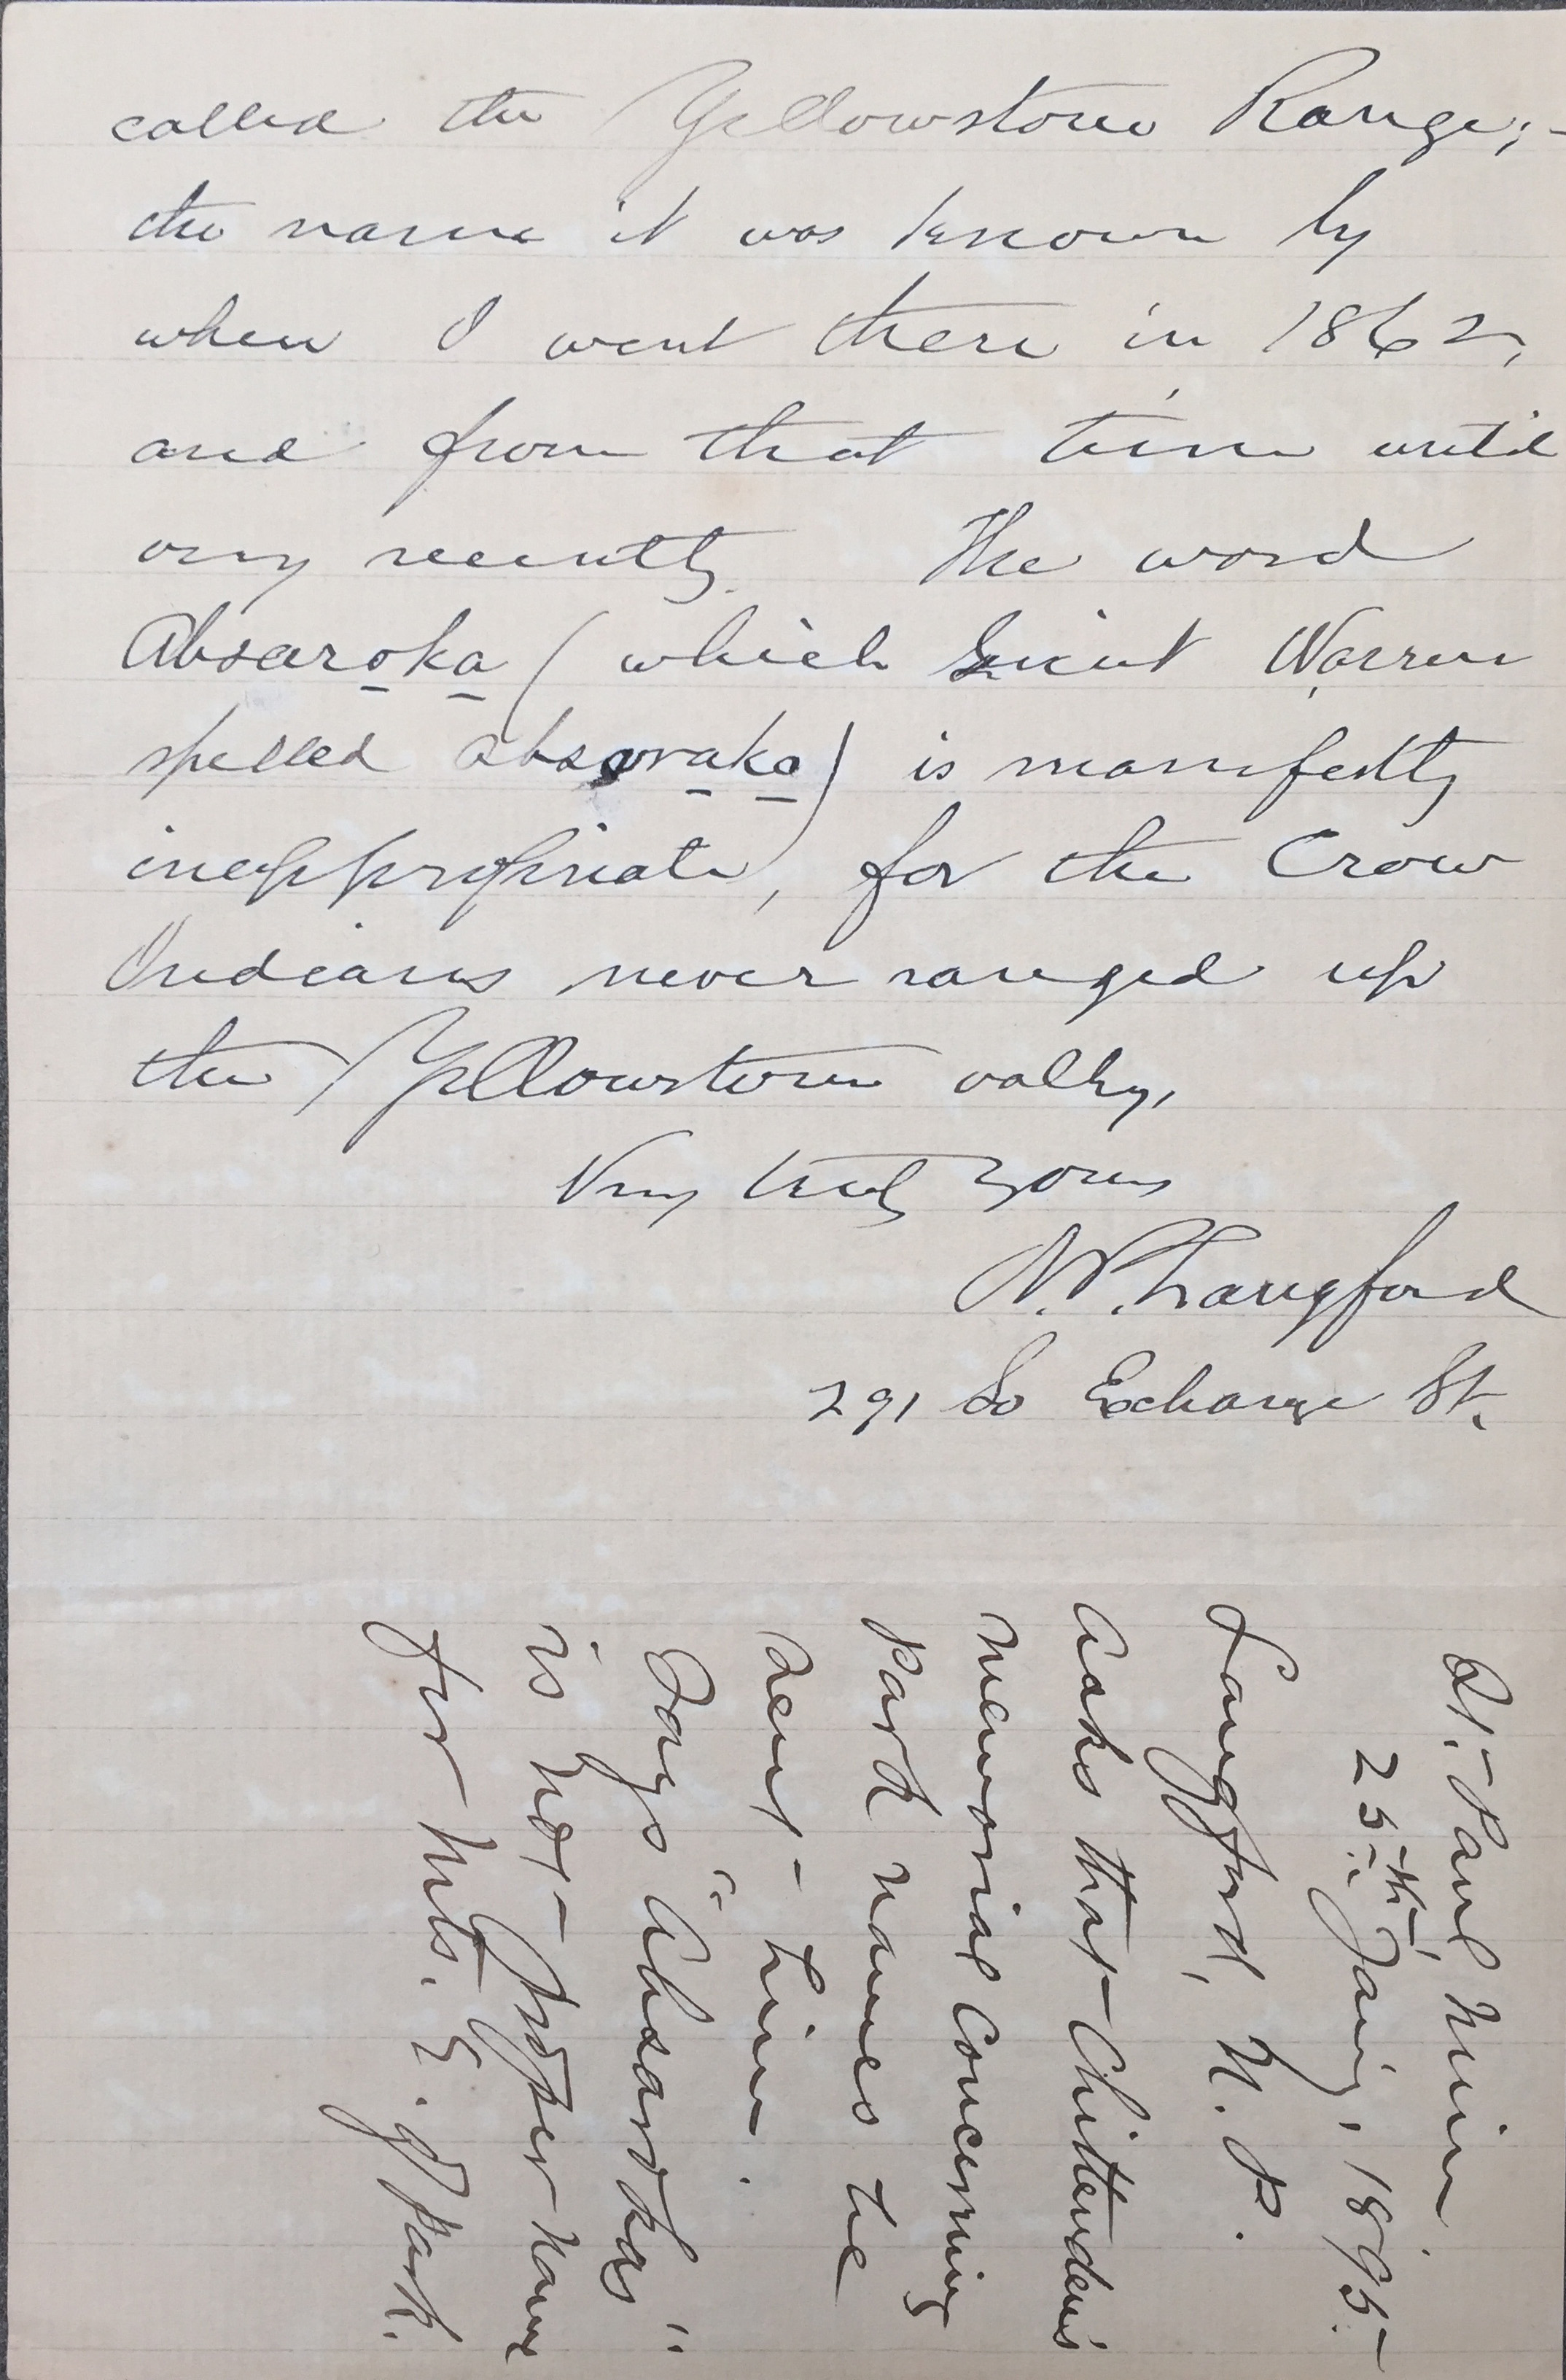 called the Yellowstone Range;-
the name it was known by
when I went there in 1862,
and from that time until
very recently. The word
Absaroka (which Lieut Warren
spelled absaraka) is manifestly
inappropriate, for the Crow
Indians never ranged up
the Yellowstone valley,
Very truly yours
N.P. Langford
291 So Exchange St.
St. Paul Minn.
25th Jan'y, 1895.
Langford, N. P.
Asks that Chittenden's
memorial concerning
park names be
sent him.
Says "Absarokas"
is not proper name
for mts. E. of Park.